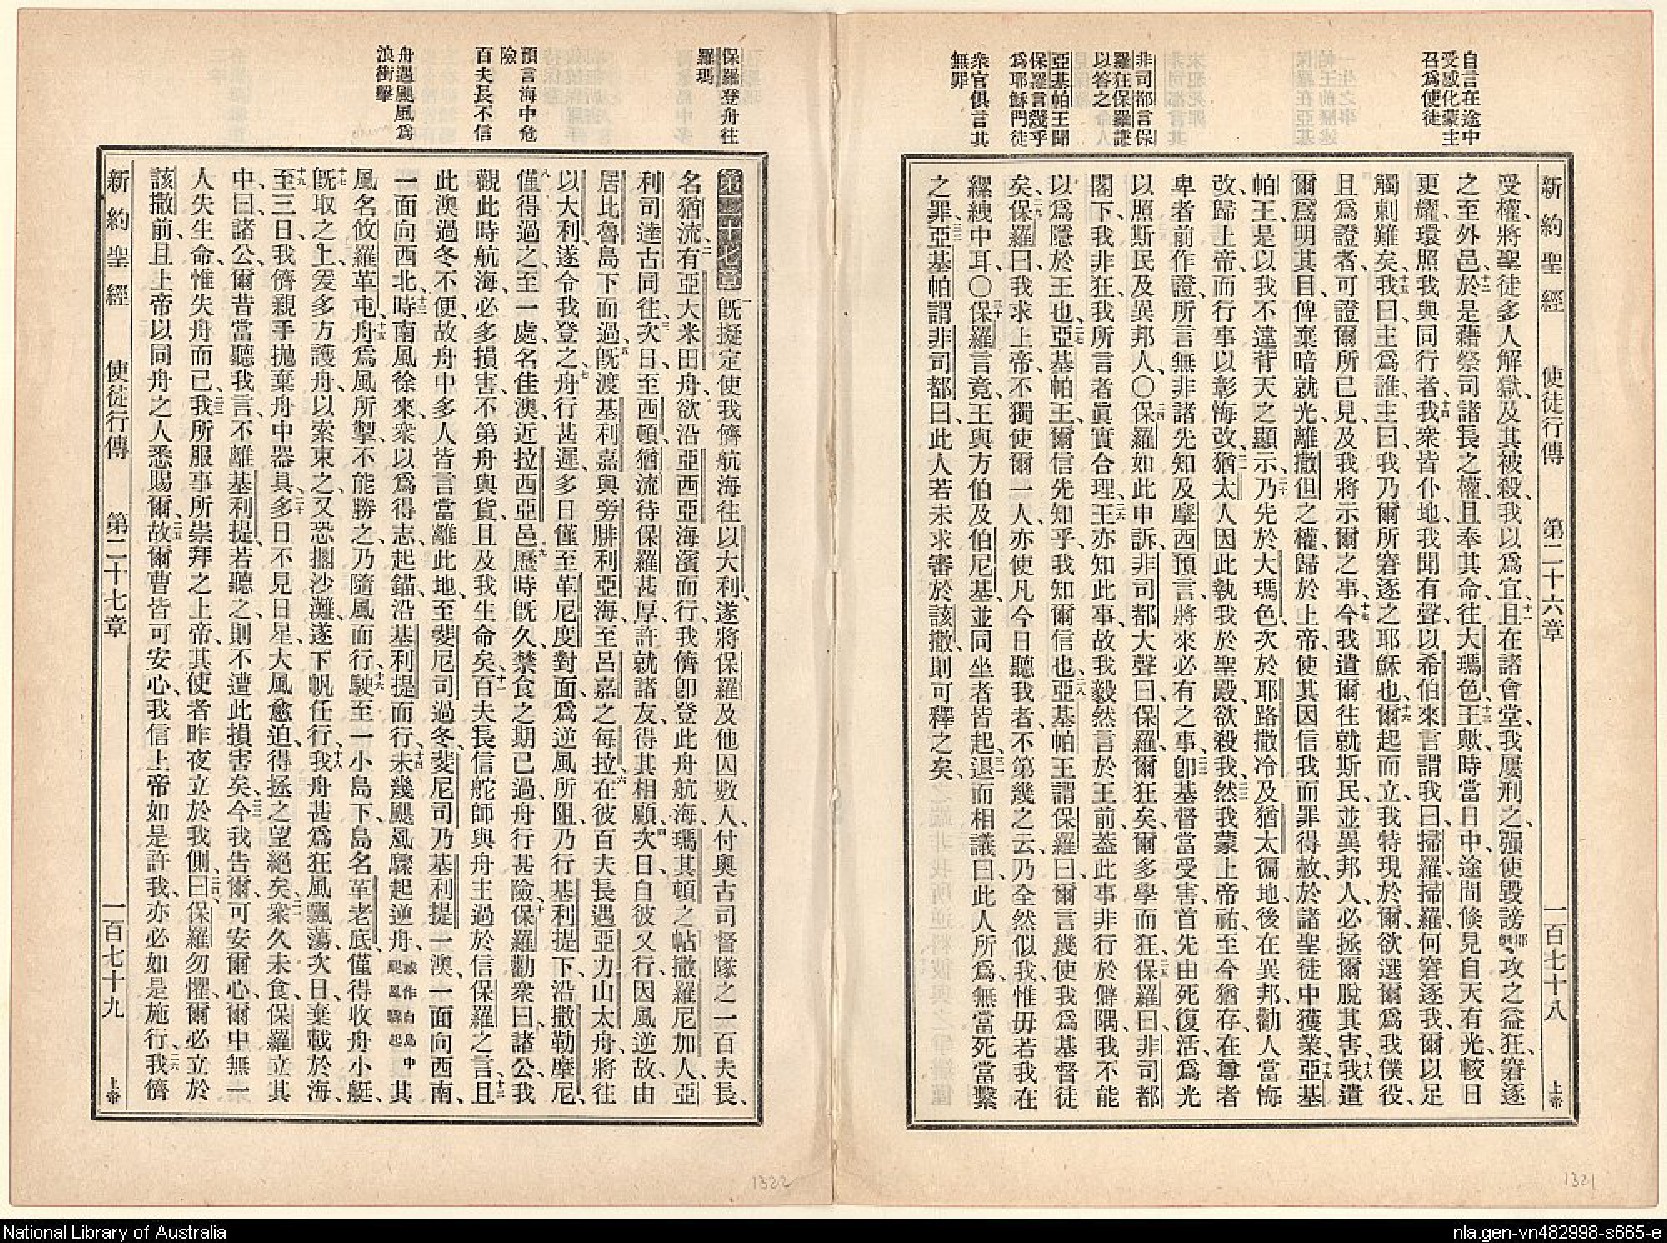 自言在途中
受感化蒙主
召爲使徒
非司都言保
羅狂保羅謙
以答之
亞基帕王聞
保羅言幾乎
爲耶穌門徒
衆官俱言其
無罪
新約聖經 使徒行傳 第二十六章 一百七十八 上帝
受權、將聖徒多人解獄、及其被殺、我以爲宜、十一且在諸會堂、我屢刑之、强使毀謗耶穌、攻之益狂、窘逐
之至外邑、十二於是藉祭司諸長之權、且奉其命、往大瑪色、十三王歟、時當日中、途間倏見自天有光、較日
更耀、環照我與同行者、十四我衆皆仆地、我聞有聲、以希伯來言謂我曰、掃羅、掃羅、何窘逐我、爾以足
觸刺難矣、十五我曰、主爲誰、主曰、我乃爾所窘逐之耶穌也、十六爾起而立、我特現於爾、欲選爾爲我僕役、
且爲證者、可證爾所已見、及我將示爾之事、十七今我遣爾往就斯民、並異邦人、必拯爾脫其害、十八我遣
爾爲明其目、俾棄暗就光、離撒但之權、歸於上帝、使其因信我而罪得赦、於諸聖徒中獲業、十九亞基
帕王、是以我不違背天之顯示、二十乃先於大瑪色、次於耶路撒冷、及猶太徧地、後在異邦、勸人當悔
改、歸上帝、而行事以彰悔改、二一猶太人因此執我於聖殿、欲殺我、二二然我蒙上帝祐、至今猶存、在尊者
卑者前作證、所言無非諸先知及摩西預言將來必有之事、二三卽基督當受害、首先由死復活、爲光
以照斯民、及異邦人、〇二四保羅如此申訴、非司都大聲曰、保羅、爾狂矣、爾多學而狂、二五保羅曰、非司都
閣下、我非狂、我所言者、眞實合理、二六王亦知此事、故我毅然言於王前、蓋此事非行於僻隅、我不能
以爲隱於王也、二七亞基帕王、爾信先知乎、我知爾信也、二八亞基帕王謂保羅曰、爾言幾使我爲基督徒
矣、二九保羅曰、我求上帝、不獨使爾一人、亦使凡今日聽我者、不第幾之云、乃全然似我、惟毋若我在
縲絏中耳、〇三十保羅言竟、王與方伯、及伯尼基、並同坐者皆起、三一退而相議曰、此人所爲、無當死當繫
之罪、三二亞基帕謂非司都曰、此人若未求審於該撒、則可釋之矣、
保羅登舟往
羅瑪
預言海中危
險
百夫長不信
舟遇颶風爲
浪衝擊
第二十七章 一旣擬定使我儕航海往以大利、遂將保羅及他囚數人、付與古司督隊之一百夫長、
名猶流、二有亞大米田舟、欲沿亞西亞海濱而行、我儕卽登此舟航海、瑪其頓之帖撒羅尼加人亞
利司達古同往、三次日至西頓、猶流待保羅甚厚、許就諸友、得其相顧、四次日自彼又行、因風逆、故由
居比魯島下面過、五旣渡基利嘉與旁腓利亞海、至呂嘉之每拉、六在彼百夫長遇亞力山太舟、將往
以大利、遂令我登之、七舟行甚遲、多日僅至革尼度對面、爲逆風所阻、乃行基利提下、沿撒勒摩尼、
八僅得過之、至一處、名佳澳、近拉西亞邑、九歷時旣久、禁食之期已過、舟行甚險、十保羅勸衆曰、諸公、我
觀此時航海、必多損害、不第舟與貨、且及我生命矣、十一百夫長信舵師與舟主、過於信保羅之言、十二且
此澳過冬不便、故舟中多人、皆言當離此地、至斐尼司過冬、斐尼司乃基利提一澳、一面向西南、
一面向西北、十三時南風徐來、衆以爲得志、起錨沿基利提而行、十四未幾颶風驟起逆舟、或作自島中颶風驟起其
風名攸羅革屯、十五舟爲風所掣、不能勝之、乃隨風而行、十六駛至一小島下、島名革老底、僅得收舟小艇、
十七旣取之上、爰多方護舟、以索束之、又恐擱沙灘、遂下帆任行、十八我舟甚爲狂風飄蕩、次日棄載於海、
十九至三日、我儕親手拋棄舟中器具、二十多日不見日星、大風愈迫、得拯之望絕矣、二一衆久未食、保羅立其
中曰、諸公、爾昔當聽我言、不離基利提、若聽之、則不遭此損害矣、二二今我告爾、可安爾心、爾中無一
人失生命、惟失舟而已、二三我所服事所崇拜之上帝、其使者昨夜立於我側、二四曰、保羅勿懼、爾必立於
該撒前、且上帝以同舟之人悉賜爾、二五故爾曹皆可安心、我信上帝如是許我、亦必如是施行、二六我儕
新約聖經 使徒行傳 第二十七章 一百七十九 上帝
1322
1321
National Library of Australia
nla.gen-vn482998-s665-e